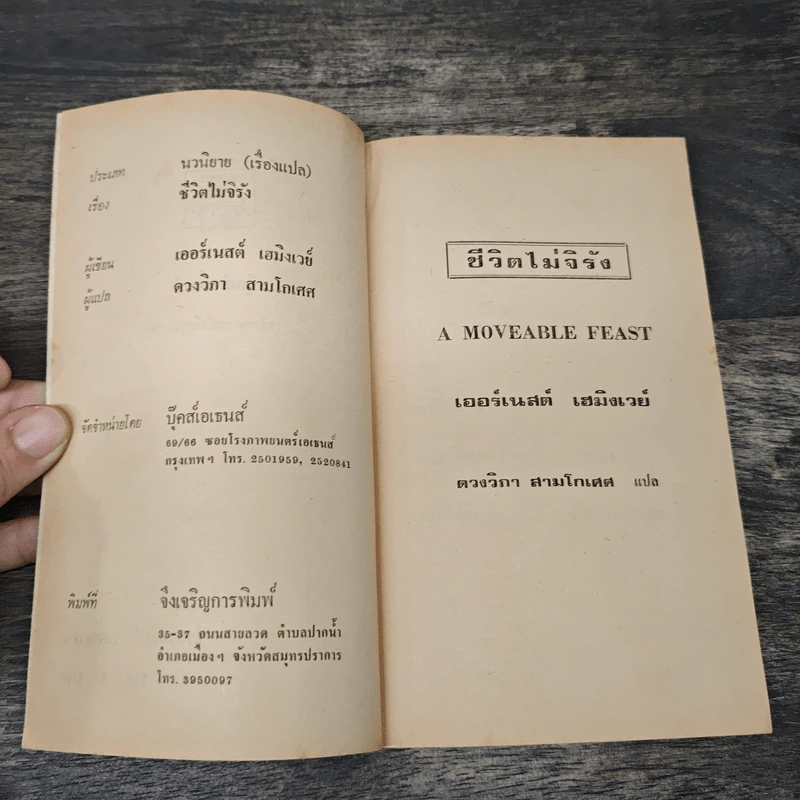 ประเภท นวนิยาย (เรื่องแปล)
เรื่อง ชีวิตไม่จิรัง
ผู้เขียน เออร์เนสต์ เฮมิงเวย์
ผู้แปล ดวงวิภา สามโกเศศ
จัดจำหน่ายโดย บุ๊คส์เอเธนส์
69/66 ซอยโรงภาพยนตร์เอเธนส์
กรุงเทพฯ โทร. 2501959, 2520841
พิมพ์ที่ จึงเจริญการพิมพ์
35-37 ถนนสายลวด ตำบลปากน้ำ
อำเภอเมืองฯ จังหวัดสมุทรปราการ
โทร. 3950097
ชีวิตไม่จิรัง
A MOVEABLE FEAST
เออร์เนสต์ เฮมิงเวย์
ดวงวิภา สามโกเศศ แปล